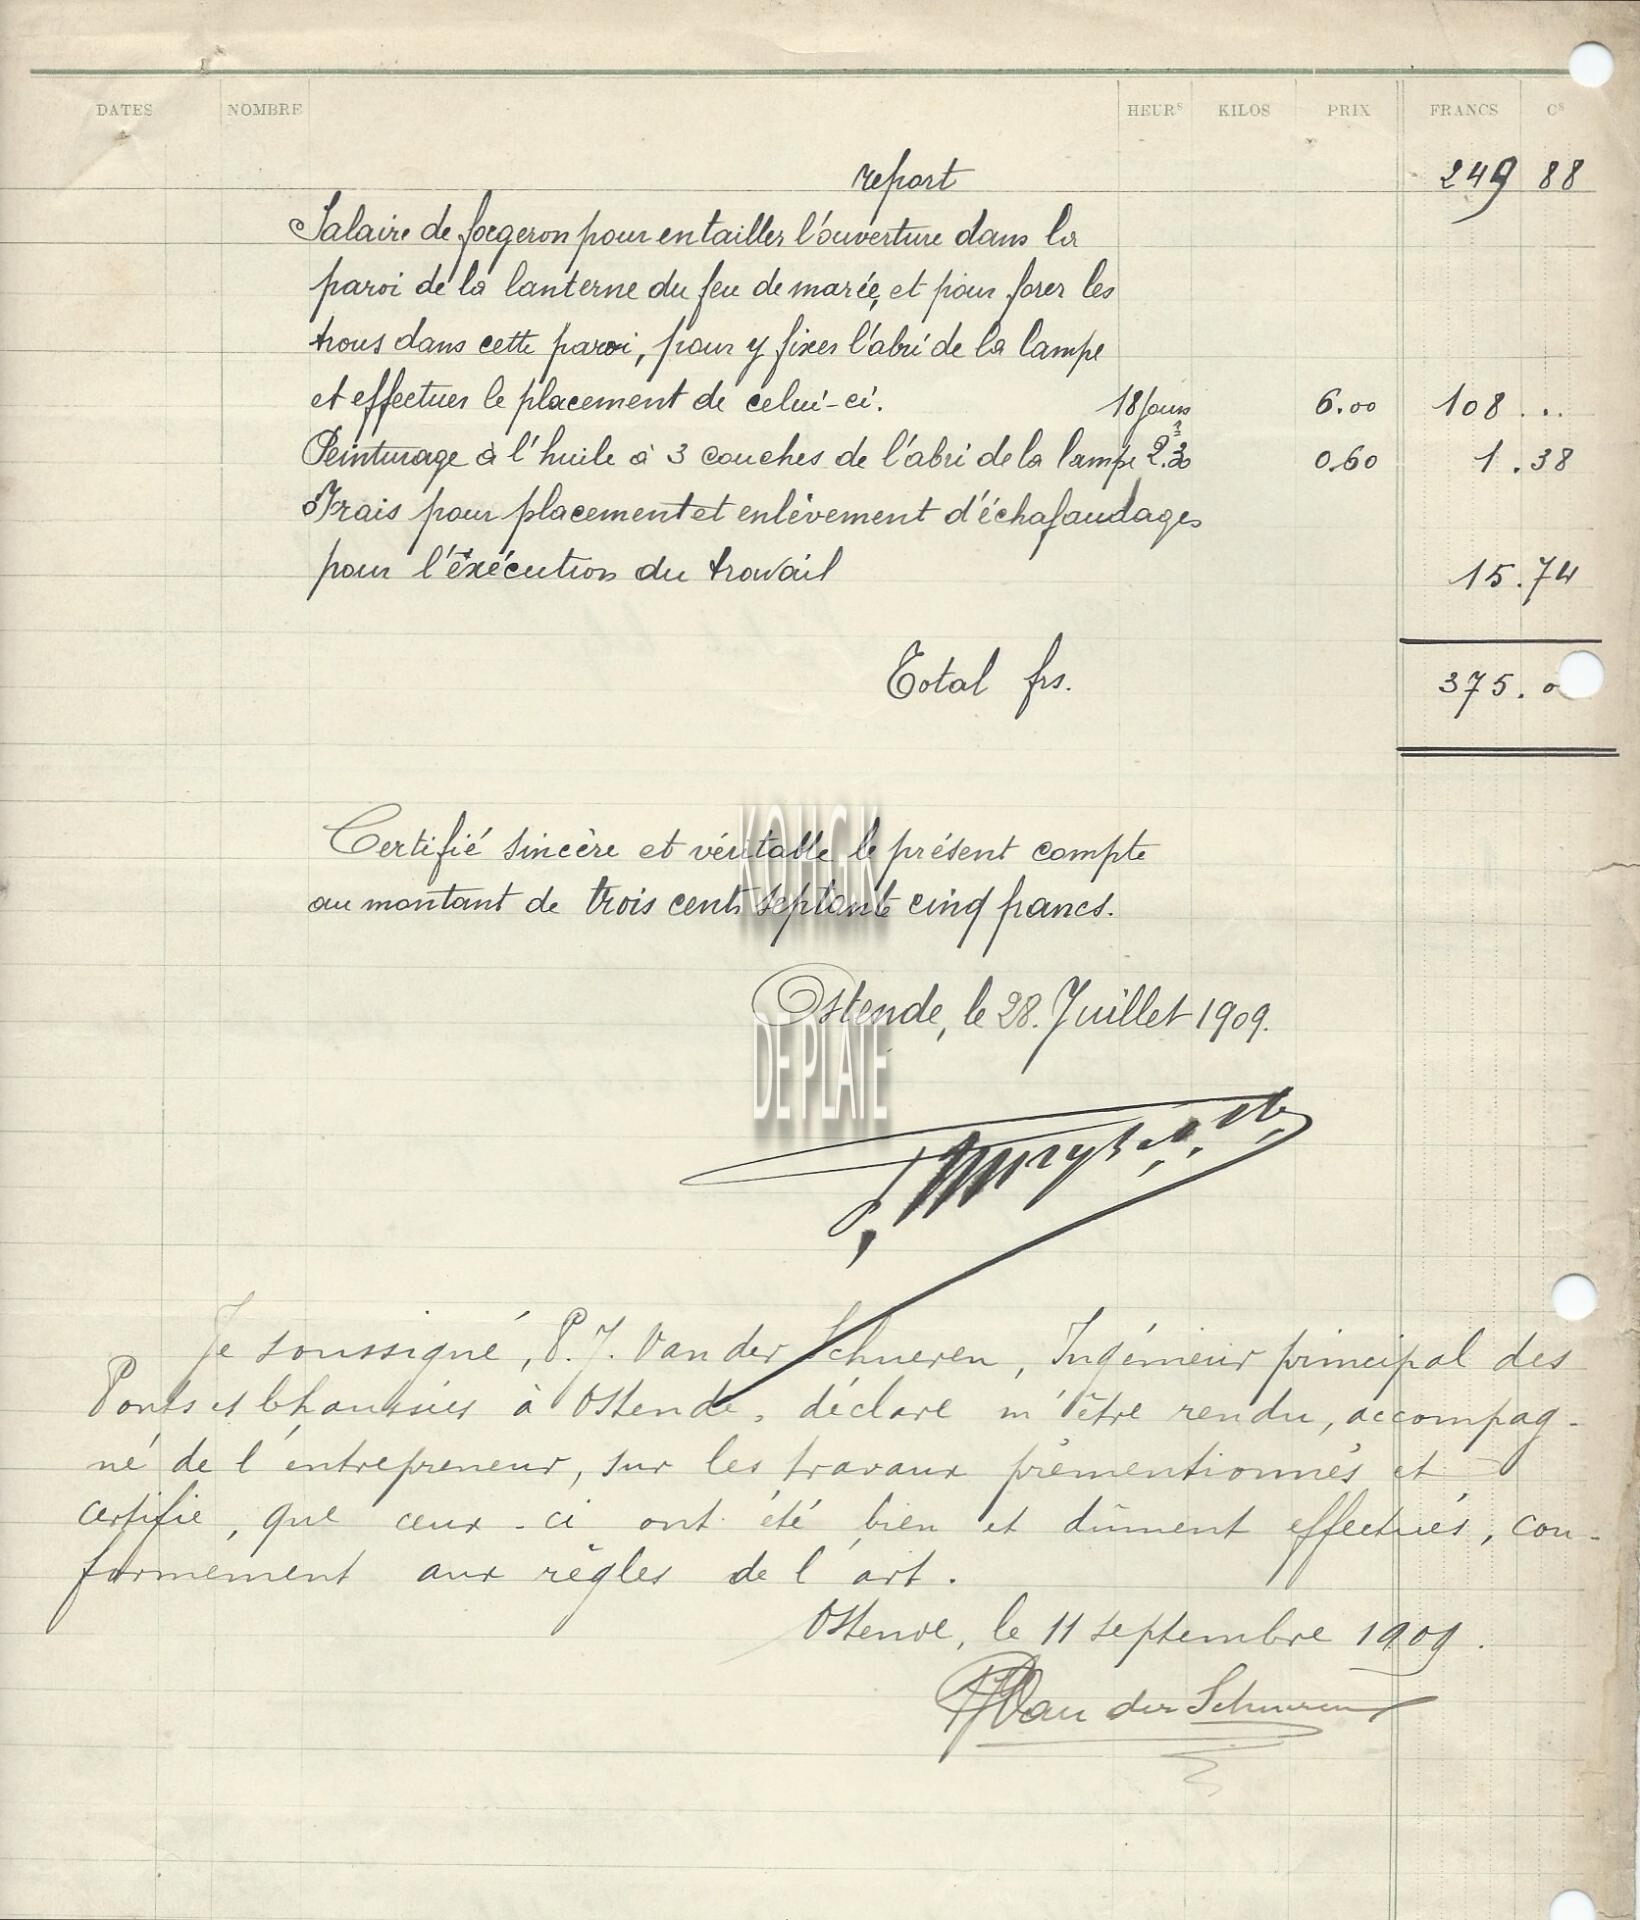 DATES NOMBRE HEURS KILOS PRIX FRANCS CS
report 249 88
Salaire de forgeron pour entailler l'ouverture dans la
paroi de la lanterne du feu de marée, et pour forer les
trous dans cette paroi, pour y fixer l'abri de la lampe
et effectuer le placement de celui-ci. 18 jours 6.00 108 . ..
Peinturage à l'huile à 3 couches de l'abri de la lampe 2.30 0.60 1.38
Frais pour placement et enlèvement d'échafaudages
pour l'éxécution du travail 15.74
Total frs. 375.0
Certifié sincère et véritable le présent compte
au montant de trois cent septante cinq francs.
KOHGK
Ostende, le 28. Juillet 1909.
DE PLATE
Je soussigné, P.J. Van der Schueren, Ingénieur principal des
Ponts et Chaussées à Ostende, déclare m'être rendu, accompag-
né de l'entrepreneur, sur les travaux prémentionnés et
certifie, que ceux-ci ont été bien et dûment effectués, con-
formément aux règles de l'art.
Ostende, le 11 septembre 1909.
PJVan der Schueren